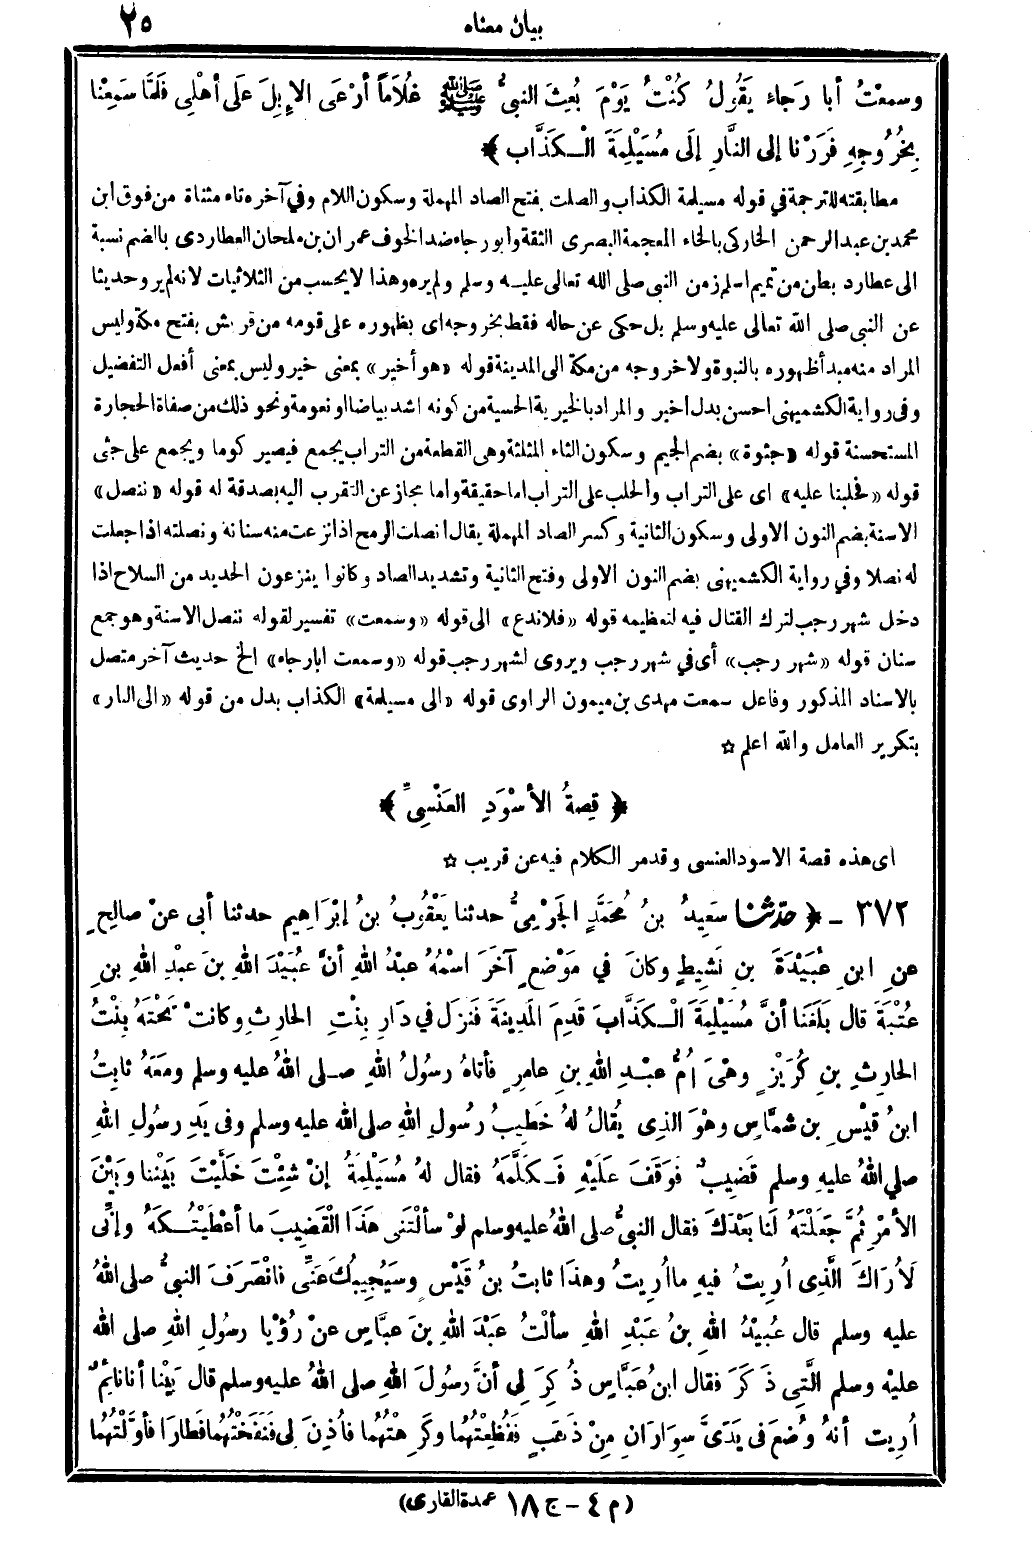 بيان معناه ٢٥
وسمعْتُ أبا رجَاءِ يَقُولُ كُنْتُ يَوْمَ بُعِثَ النبيُّ ﷺ غُلَاماً أرْعَى الإبِلَ عَلَى أهْلِي فَلَمَّا سَمِعْنا
بِخُرُوجِهِ فَرَرْنا إلى النَّارِ إلَى مُسَيْلِمَةَ الْـكَذَّابِ ﴾
مطابقته للترجمة في قوله مسيلمة الكذاب والصلت بفتح الصاد المهملة وسكون اللام وفي آخره تاء مثناة من فوق ابن
محمد بن عبد الرحمن الخاركي بالخاء المعجمة البصرى الثقة وأبو رجاء ضد الخوف عمران بن ملحان العطاردى بالضم نسبة
الى عطارد بطن من تميم اسلم زمن النبي صلى الله تعالى عليه وسلم ولم يره وهذا لا يحسب من الثلاثيات لانه لم يرو حديثا
عن النبي صلى الله تعالى عليه وسلم بل حكى عن حاله فقط بخروجه اى بظهوره على قومه من قريش بفتح مكة وليس
المراد منه مبدأ ظهوره بالنبوة ولا خروجه من مكة الى المدينة قوله «هو أخير» بمعنى خير وليس بمعنى أفعل التفضيل
وفى رواية الكشميهنى احسن بدل أخير والمراد بالخيرية الحسية من كونه اشد بياضا او نعومة ونحو ذلك من صفاة الحجارة
المستحسنة قوله «جثوة» بضم الجيم وسكون الثاء المثلثة وهى القطعة من التراب يجمع فيصير كوما ويجمع على جثى
قوله «فحلبنا عليه» اى على التراب والحلب على التراب اما حقيقة واما مجاز عن التقرب اليه بصدقة له قوله «ننصل»
الاسنة بضم النون الاولى وسكون الثانية وكسر الصاد المهملة يقال انصلت الرمح اذا نزعت منه سنانه ونصلته اذا جعلت
له نصلا وفي رواية الكشميهنى بضم النون الاولى وفتح الثانية وتشديد الصاد وكانوا ينزعون الحديد من السلاح اذا
دخل شهر رجب لترك القتال فيه لتعظيمه قوله «فلا ندع» الى قوله «وسمعت» تفسير لقوله ننصل الاسنة وهو جمع
سنان قوله «شهر رجب» أى في شهر رجب ويروى لشهر رجب قوله «وسمعت ابا رجاء» الخ حديث آخر متصل
بالاسناد المذكور وفاعل سمعت مهدى بن ميمون الراوى قوله «الى مسيلمة» الكذاب بدل من قوله «الى النار»
بتكرير العامل والله اعلم ☆
﴿ قِصةُ الأسْوَدِ العَنْسِىِّ ﴾
اى هذه قصة الاسود العنسى وقد مر الكلام فيه عن قريب ☆
٣٧٢ ـ ﴿ حدثنا سَعِيدُ بنُ مُحَمَّدٍ الجَرْمِىُّ حدثنا يَعْقُوبُ بنُ إبْرَاهِيم حدثنا أبى عنْ صالِحٍ
عنِ ابنِ عُبَيْدَةَ بنِ نَشِيطٍ وكانَ في مَوْضِعٍ آخَرَ اسْمُهُ عبْدُ اللهِ أنَّ عُبَيْدَ اللهِ بنَ عبْدِ اللهِ بنِ
عُتْبَةَ قال بَلَغَنا أنَّ مُسَيْلِمَةَ الْـكَذَّابَ قَدِمَ المَدِينَةَ فَنَزَلَ في دَارِ بِنْتِ الحارِثِ وكانَتْ تَحْتَهُ بِنْتُ
الحارِثِ بنِ كُرَيْزٍ وهْىَ اُمُّ عبْدِ اللهِ بنِ عامِرٍ فأتاهُ رسُولُ اللهِ صلى اللهُ عليه وسلم ومَعَهُ ثابِتُ
ابنُ قَيْسِ بنِ شَمَّاسٍ وهْوَ الذِى يُقالُ لهُ خَطِيبُ رسُولِ اللهِ صلى اللهُ عليه وسلم وفى يَدِ رسُولِ اللهِ
صلي اللهُ عليهِ وسلم قَضِيبٌ فَوَقَفَ عَلَيْهِ فَـكَلَّمَهُ فقال لهُ مُسَيْلِمَةُ إنْ شِئْتَ خَلَّيْتَ بَيْنَنا وَبَيْنَ
الأمْرِ ثُمَّ جَعَلْتَهُ لَنا بَعْدَكَ فقال النبيُّ صلى اللهُ عليه وسلم لوْ سألْتَنى هَذَا القَضِيبَ ما أعْطَيْتُـكَهُ وإنِّى
لَأُرَاكَ الَّذِى اُرِيتُ فيهِ ما اُرِيتُ وهذَا ثابتُ بنُ قَيْسٍ وسَيُجِيبُكَ عَنِّى فانْصَرَفَ النبيُّ صلى اللهُ
عليه وسلم قال عُبَيْدُ اللهِ بنُ عَبْدِ اللهِ سألْتُ عَبْدَ اللهِ بنَ عبَّاسٍ عنْ رُؤْيا رسُولِ اللهِ صلى الله
عليْه وسلم الَّتِي ذَكَرَ فقال ابنُ عَبَّاسٍ ذُكِرَ لِي أنَّ رسُولَ اللهِ صلى اللهُ عليه وسلم قال بَيْنا أنا نائِمٌ
اُرِيتُ أنهُ وُضِعَ فى يَدَىَّ سِوَارَانِ مِنْ ذَهَبٍ فَفُظِعْتُهُما وكَرِهْتُهُما فأُذِنَ لِى فَنَفَخْتُهُما فَطارَا فأوَّلْتُهُما
(م ٤ – ج ١٨ عمدة القارى)